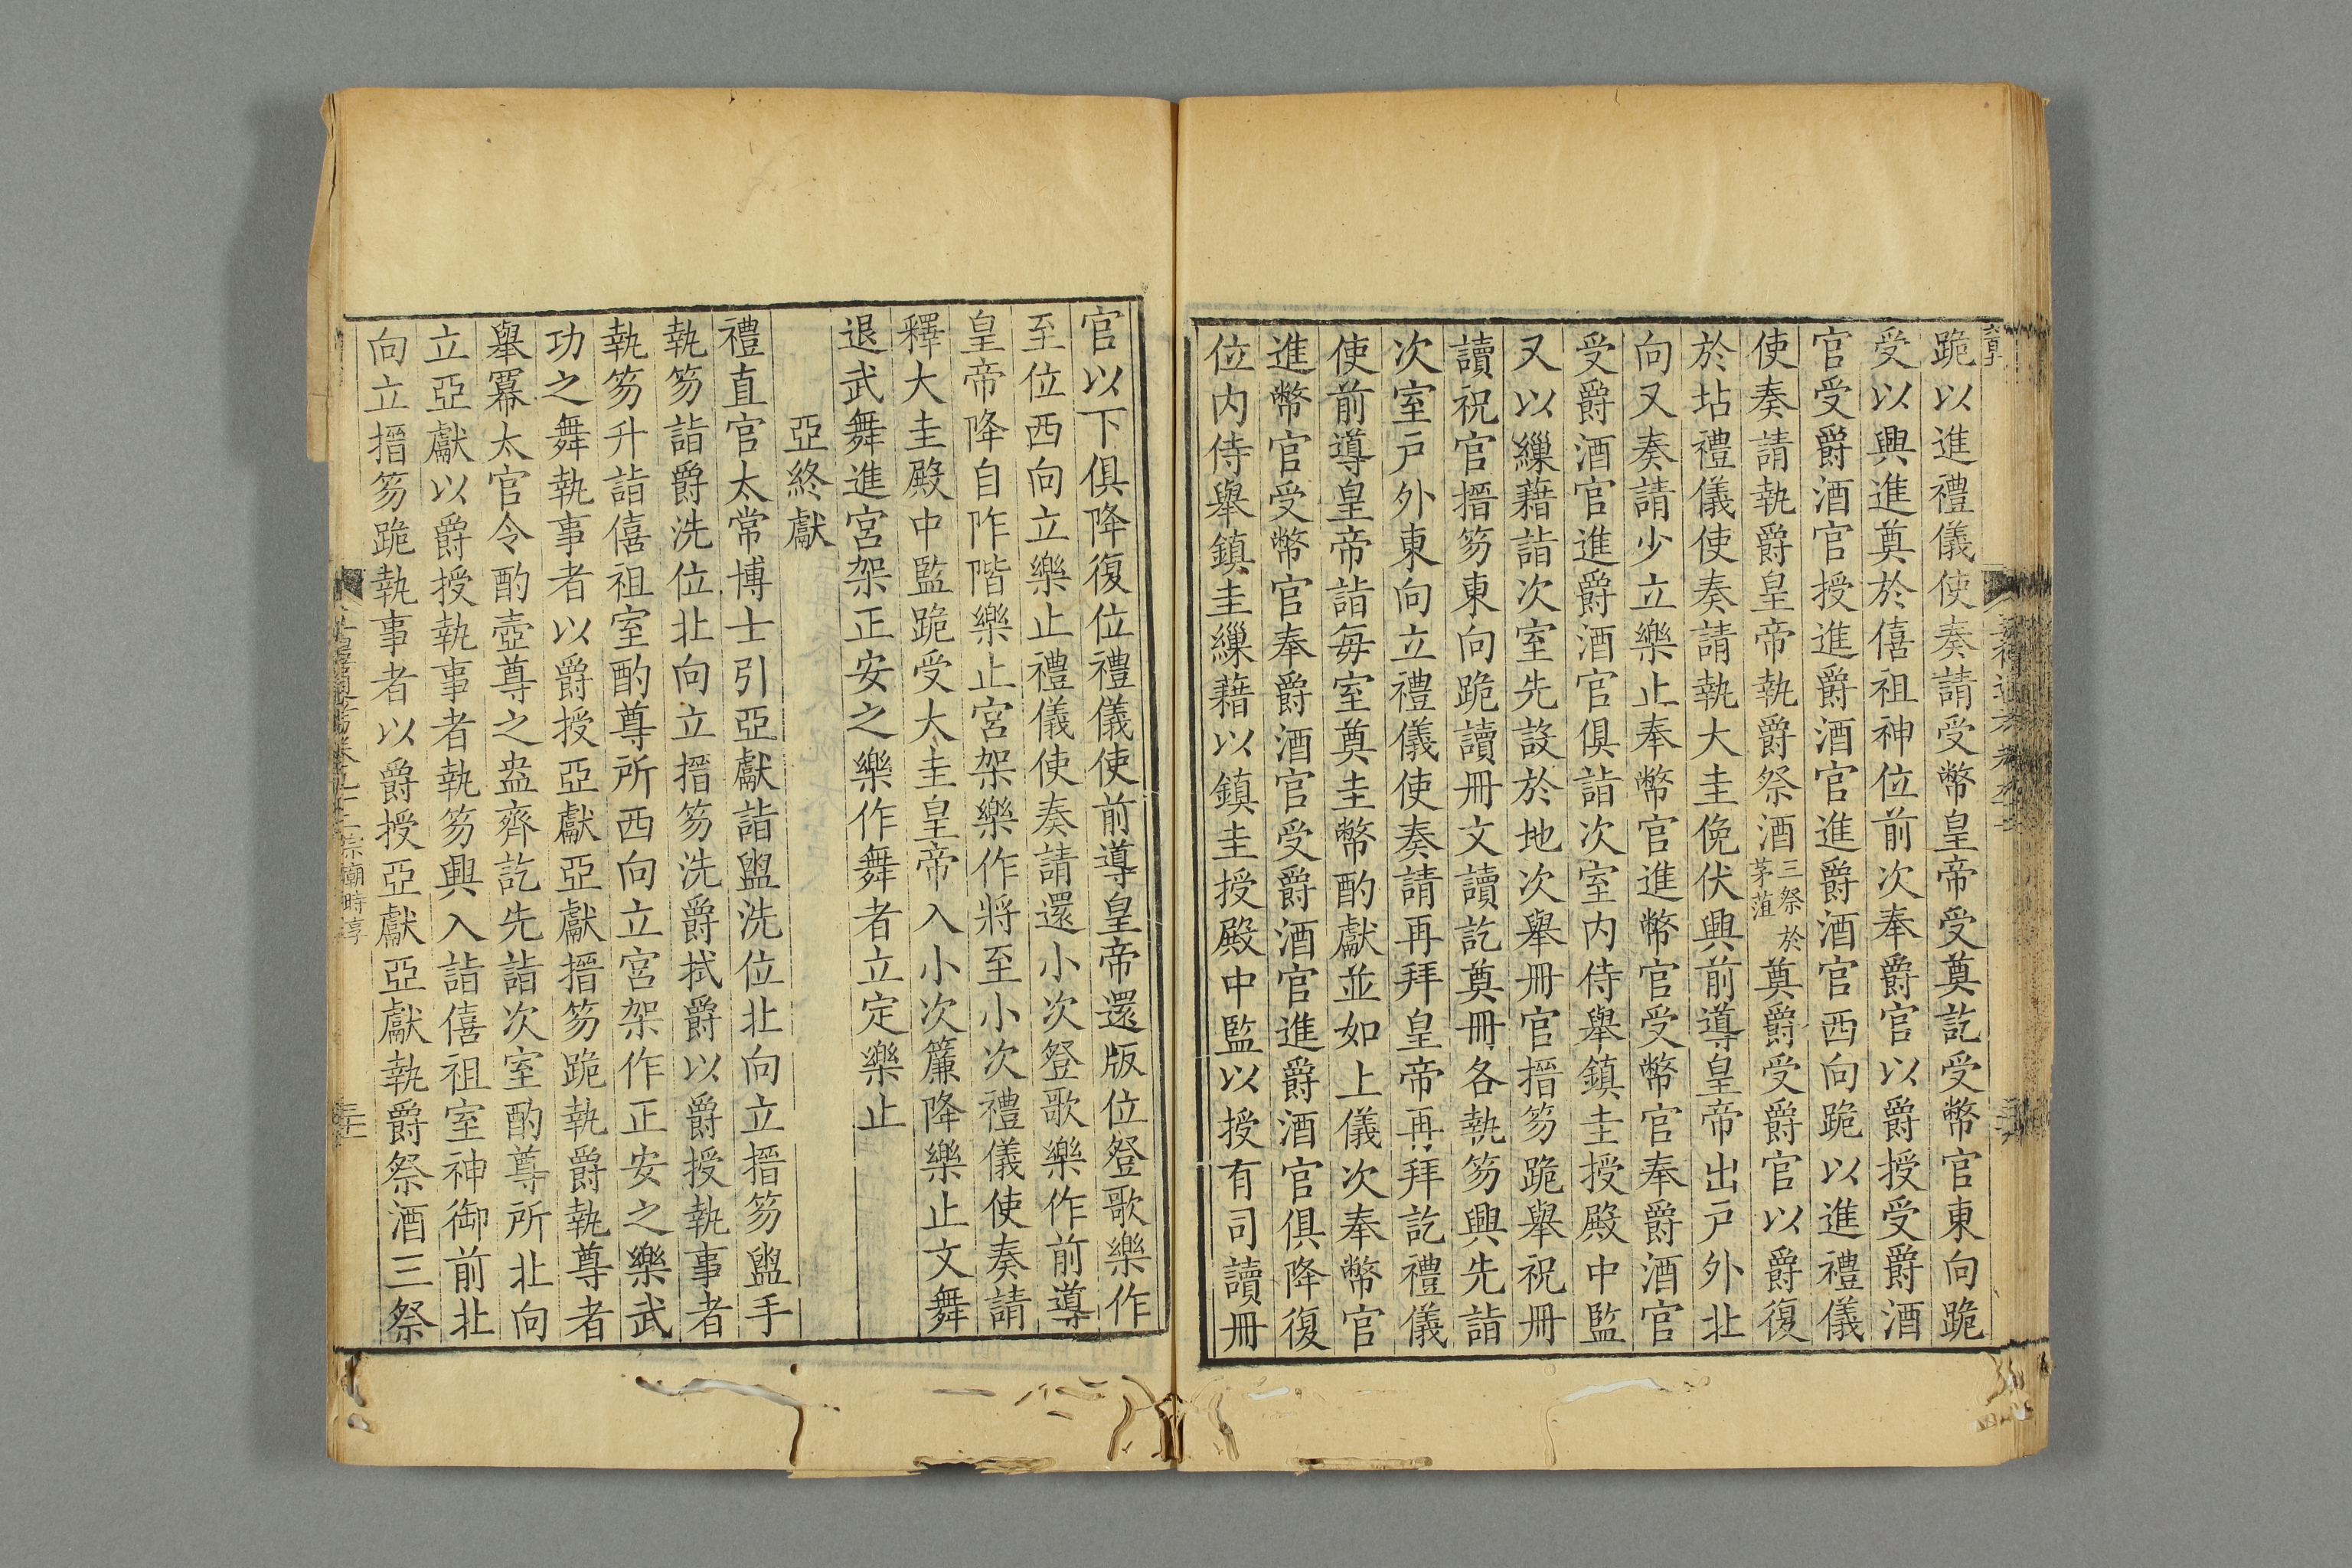 跪以進禮儀使奏請受幣皇帝受奠訖受幣官東向跪
受以興進奠於僖祖神位前次奉爵官以爵授受爵酒
官受爵酒官授進爵酒官進爵酒官西向跪以進禮儀
使奏請執爵皇帝執爵祭酒三祭於茅苴奠爵受爵官以爵復
於坫禮儀使奏請執大圭俛伏興前導皇帝出戸外北
向又奏請少立樂止奉幣官進幣官受幣官奉爵酒官
受爵酒官進爵酒官俱詣次室内侍舉鎮圭授殿中監
又以繅藉詣次室先設於地次舉冊官搢笏跪舉祝冊
讀祝官搢笏東向跪讀冊文讀訖奠冊各執笏興先詣
次室戸外東向立禮儀使奏請再拜皇帝再拜訖禮儀
使前導皇帝詣每室奠圭幣酌獻並如上儀次奉幣官
進幣官受幣官奉爵酒官受爵酒官進爵酒官俱降復
位内侍舉鎮圭繅藉以鎮圭授殿中監以授有司讀冊
官以下俱降復位禮儀使前導皇帝還版位登歌樂作
至位西向立樂止禮儀使奏請還小次登歌樂作前導
皇帝降自阼階樂止宮架樂作將至小次禮儀使奏請
釋大圭殿中監跪受大圭皇帝入小次簾降樂止文舞
退武舞進宮架正安之樂作舞者立定樂止
亞終獻
禮直官太常博士引亞獻詣盥洗位北向立搢笏盥手
執笏詣爵洗位北向立搢笏洗爵拭爵以爵授執事者
執笏升詣僖祖室酌尊所西向立宮架作正安之樂武
功之舞執事者以爵授亞獻亞獻搢笏跪執爵執尊者
舉冪太官令酌壺尊之盎齊訖先詣次室酌尊所北向
立亞獻以爵授執事者執笏興入詣僖祖室神御前北
向立搢笏跪執事者以爵授亞獻亞獻執爵祭酒三祭
宗廟時享